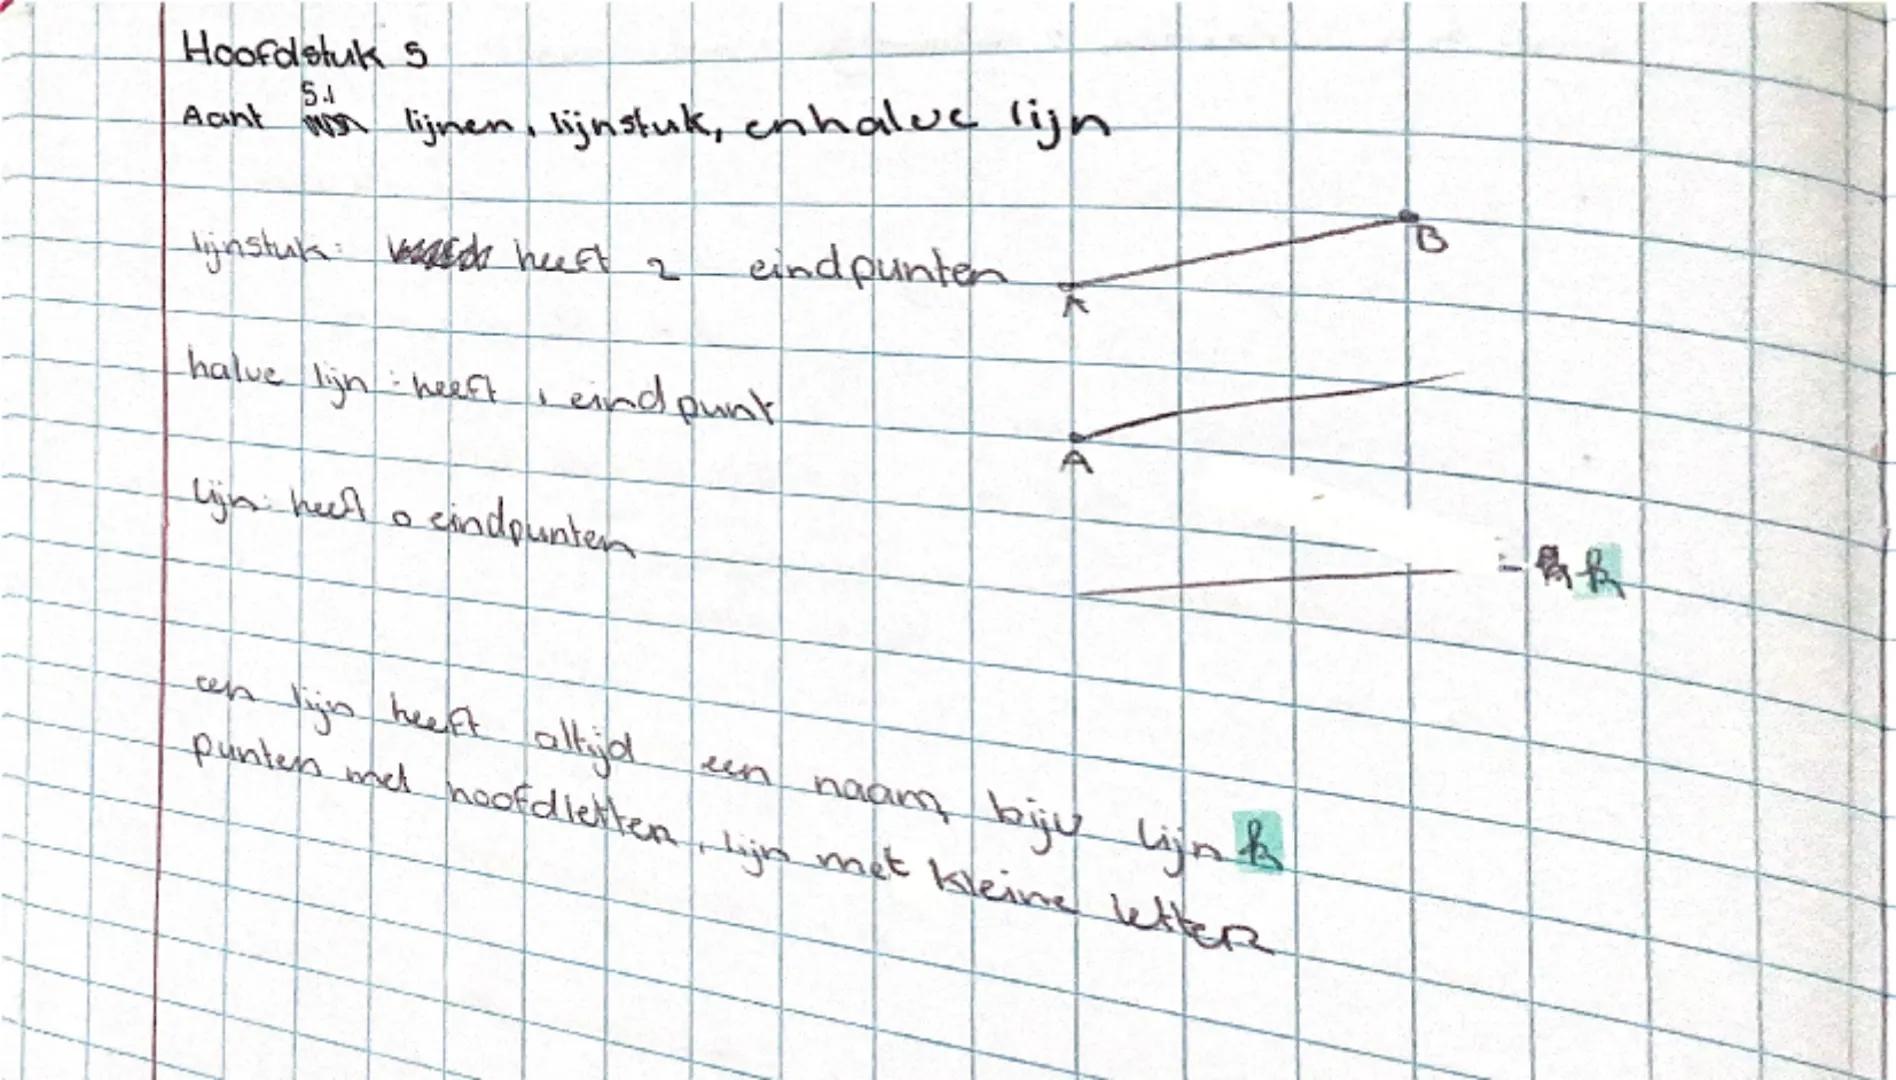 Hoofdstuk 5
Aant 5.1 lijnen, lijnstuk, en halve lijn
lijnstuk: heeft 2 eindpunten
A B
halve lijn: heeft 1 eindpunt
A
lijn: heeft 0 eindpunten
= k
een lijn heeft altijd een naam, bijv lijn k
punten met hoofdletter, lijn met kleine letter